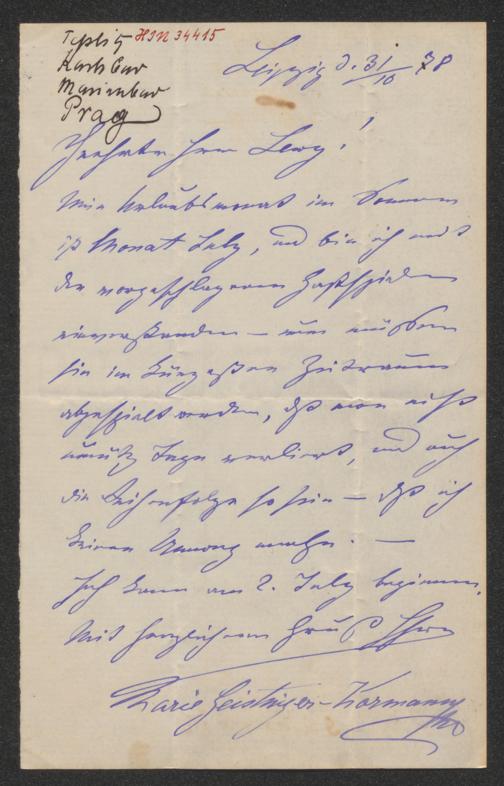 Teplitz HIN 34415
Karlsbad
Marienbad
Prag
Leipzig d. 31/10 78
Geehrter Herr Lewy!
Mein Urlaubsmonat im Sommer
ist Monat July, und bin ich mit
den vorgeschlagenen Gastspielen
einverstanden — nur müssen
sie im kürzesten Zeitraum
abgespielt werden, daß man nicht
unnütz Tage verliert, und auch
die Reihenfolge so sein — daß ich
keinen Umweg mache. —
Ich kann am 2. July beginnen.
Mit herzlichem Gruß Ihre
Marie Geistinger-Kormann